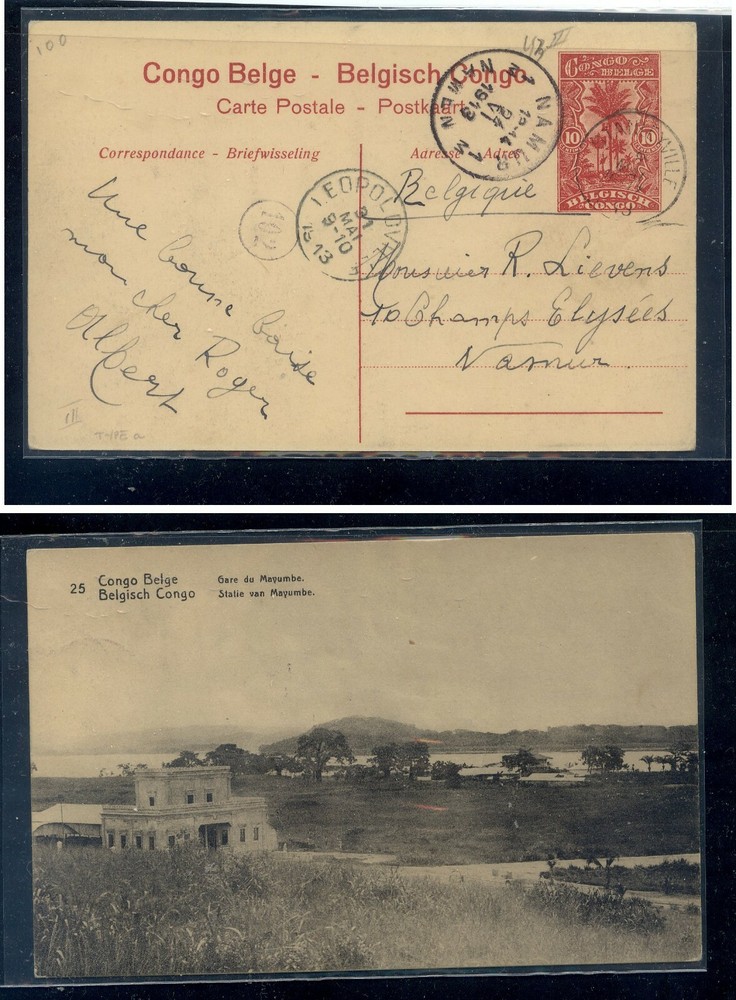 100
Congo Belge - Belgisch Congo
Carte Postale - Postkaart
Correspondance - Briefwisseling
Adresse - Adres
CONGO
BELGE
10 10
BELGISCH
CONGO
1 NAMUR 1
24
VI
1913
NAMEN
LEOPOLDVILLE
21
MAI
9-10
1913
VILLE
102
Belgique
Monsieur R. Lievens
10 Champs Elysées
Namur.
Une bonne baise
mon cher Roger
Albert
III
TYPE a
25 Congo Belge Gare du Mayumbe.
Belgisch Congo Statie van Mayumbe.